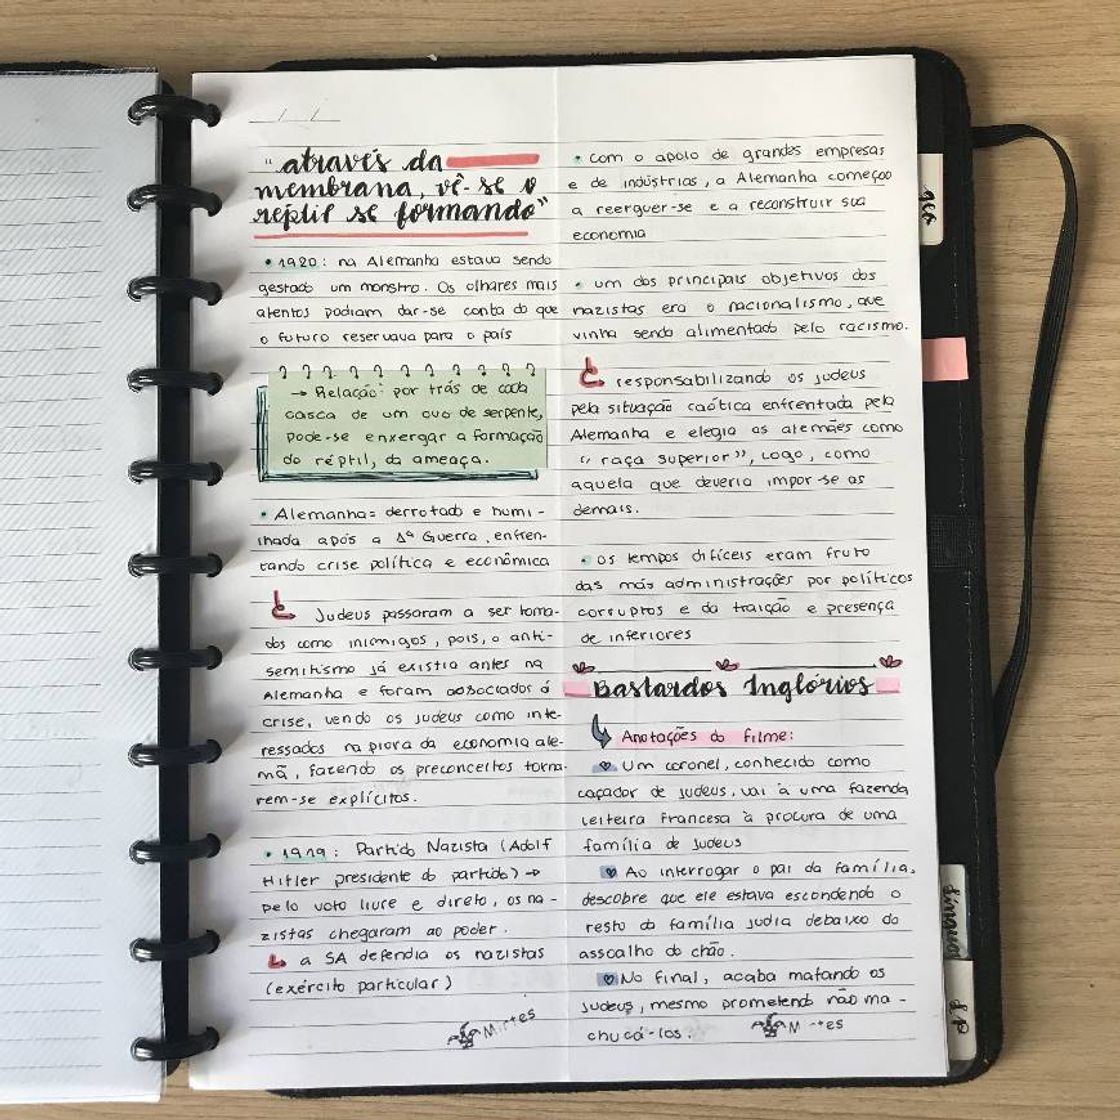 "através da
membrana, vê-se o
réptil se formando"
• 1920: na Alemanha estava sendo
gestado um monstro. Os olhares mais
atentos podiam dar-se conta do que
o futuro reservava para o país
→ Relação: por trás de cada
casca de um ovo de serpente,
pode-se enxergar a formação
do réptil, da ameaça.
• Alemanha = derrotada e humi-
lhada após a 1ª Guerra, enfren-
tando crise política e econômica
Judeus passaram a ser toma-
dos como inimigos, pois, o anti-
semitismo já existia antes na
Alemanha e foram associados á
crise, vendo os judeus como inte-
ressados na piora da economia ale-
mã, fazendo os preconceitos torna-
rem-se explícitos.
• 1919: Partido Nazista (Adolf
Hitler presidente do partido) →
pelo voto livre e direto, os na-
zistas chegaram ao poder.
↳ a SA defendia os nazistas
(exército particular)
Mirtes
• com o apoio de grandes empresas
e de indústrias, a Alemanha começou
a reerguer-se e a reconstruir sua
economia
• um dos principais objetivos dos
nazistas era o nacionalismo, que
vinha sendo alimentado pelo racismo.
responsabilizando os judeus
pela situação caótica enfrentada pela
Alemanha e elegia os alemães como
"raça superior", logo, como
aquela que deveria impor-se as
demais.
• os tempos difíceis eram fruto
das más administrações por políticos
corruptos e da traição e presença
de inferiores
Bastardos Inglórios
Anotações do filme:
Um coronel, conhecido como
caçador de judeus, vai à uma fazenda
leiteira francesa à procura de uma
família de judeus
Ao interrogar o pai da família,
descobre que ele estava escondendo o
resto da família judia debaixo do
assoalho do chão.
No final, acaba matando os
judeus, mesmo prometendo não ma-
chucá-los.
geo
língua
LP